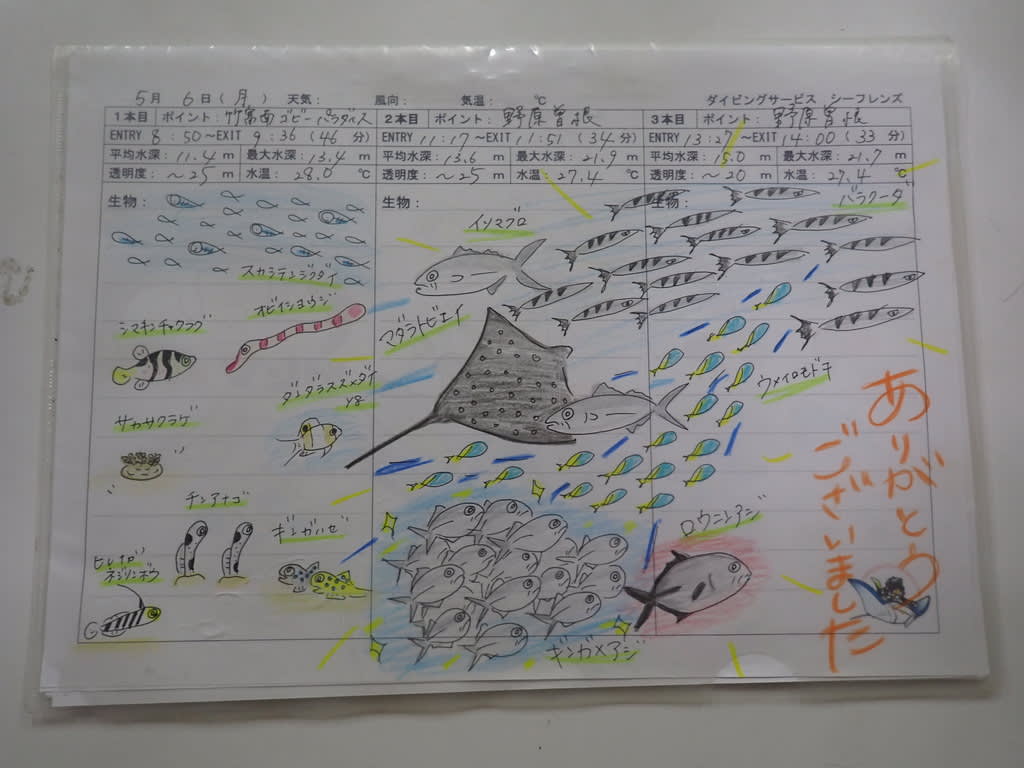 5月 6日(月) 天気: 風向: 気温: ℃ ダイビングサービス シーフレンズ
1本目 ポイント: 竹富南ゴビーパラダイス
ENTRY 8:50~EXIT 9:36 (46分)
平均水深: 11.4 m 最大水深: 13.4 m
透明度: ~25 m 水温: 28.0 ℃
生物:
スカシテンジクダイ
オビイシヨウジ
シマキンチャクフグ
ダンダラスズメダイ
yg
サカサクラゲ
チンアナゴ
ギンガハゼ
ヒレナガ
ネジリンボウ
2本目 ポイント: 野原曽根
ENTRY 11:17~EXIT 11:51 (34分)
平均水深: 13.6 m 最大水深: 21.9 m
透明度: ~25 m 水温: 27.4 ℃
生物:
イソマグロ
マダラトビエイ
ギンガメアジ
3本目 ポイント: 野原曽根
ENTRY 13:27~EXIT 14:00 (33分)
平均水深: 15.0 m 最大水深: 21.7 m
透明度: ~20 m 水温: 27.4 ℃
生物:
バラクーダ
ウメイロモドキ
ロウニンアジ
ありがとう
ございました